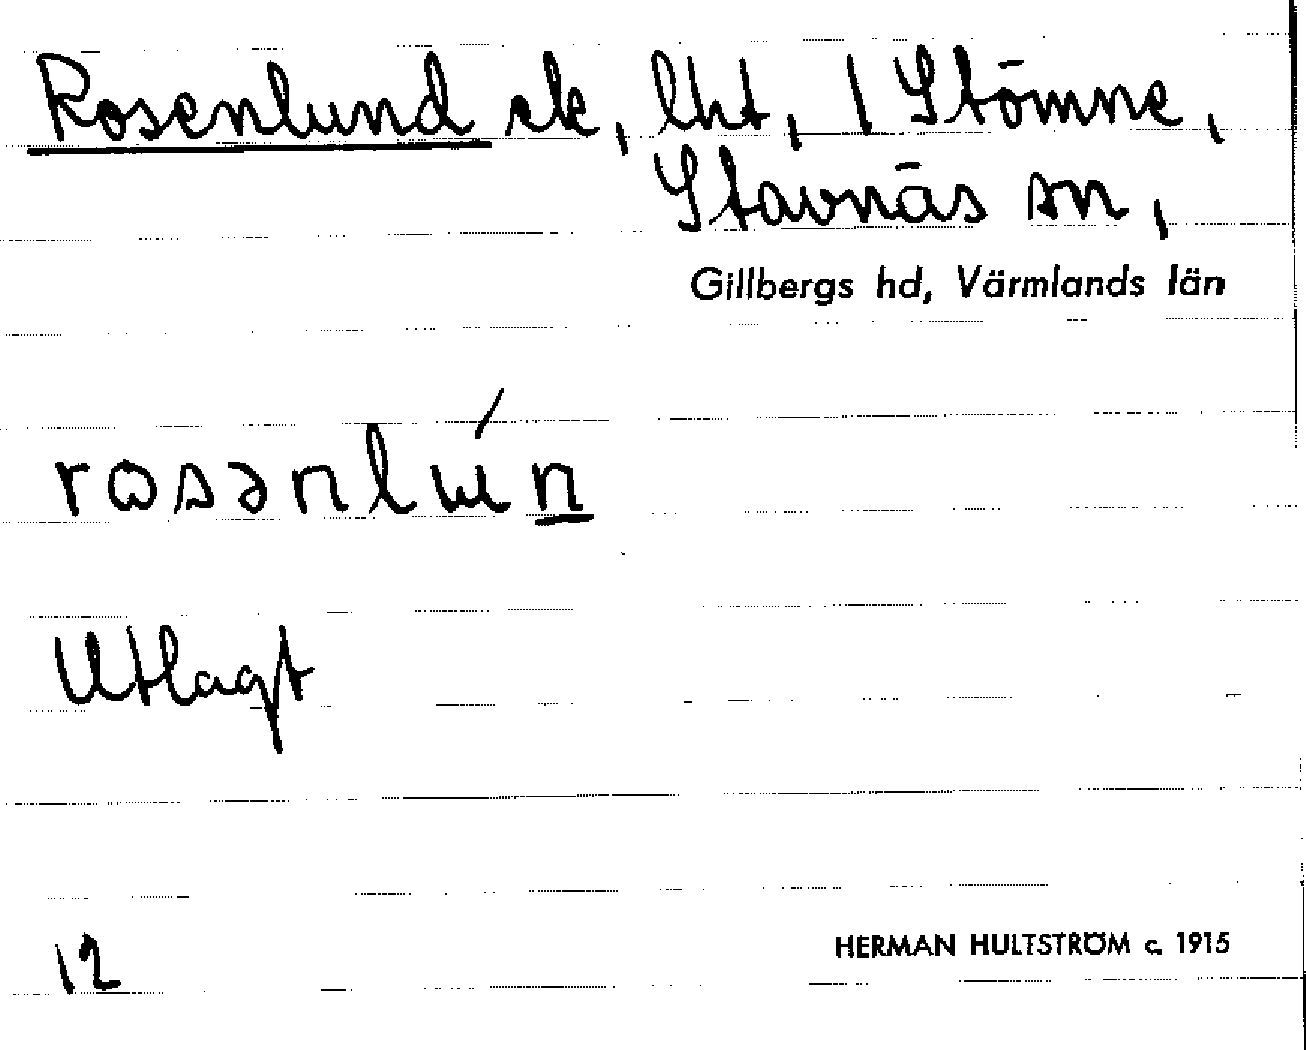 Rosenlund ck, lht, 1 Stömne,
Stavnäs sn,
Gillbergs hd, Värmlands län
rosənlún
Utlagt
12
HERMAN HULTSTRÖM c. 1915